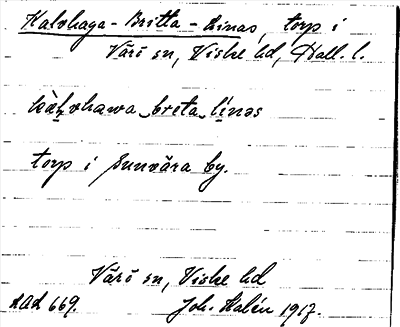 Kalvhaga-Britta-Linas, torp i
Värö sn, Viske hd, Hall. l.
kàḷvhawa brita línəs
torp i Sunvära by.
Värö sn, Viske hd
DAL 669. Joh. Kalén 1917.